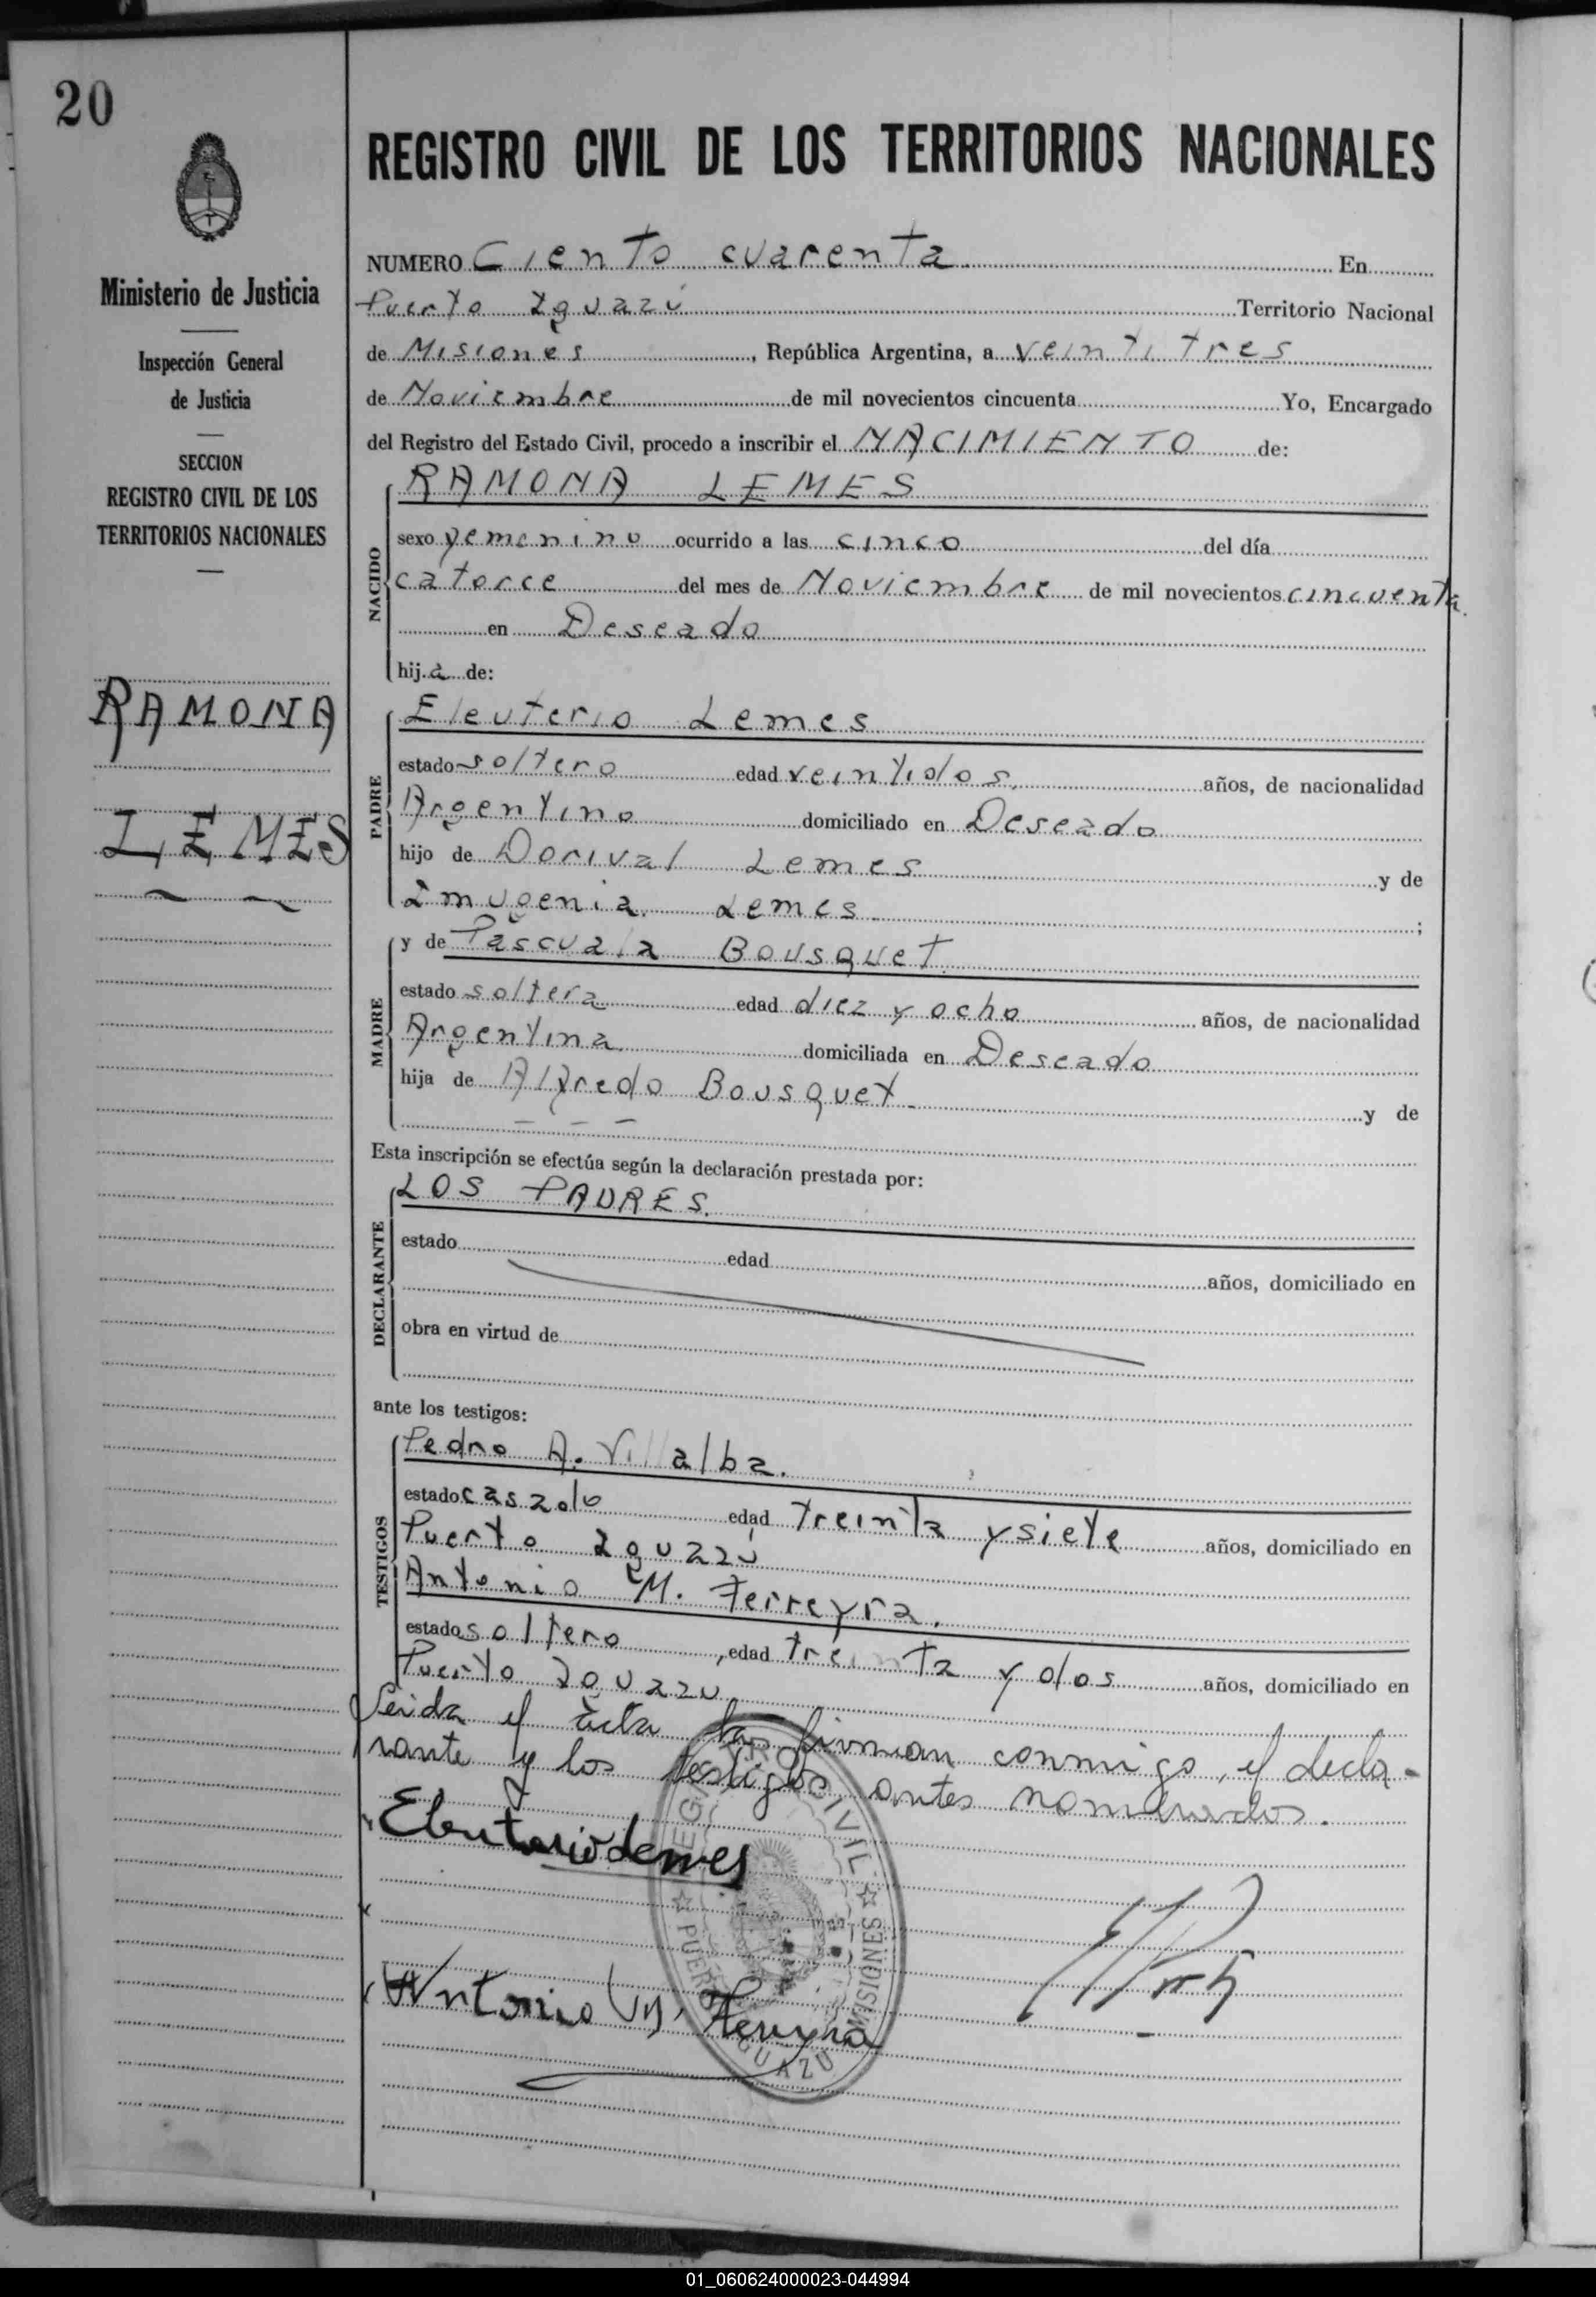 20
Ministerio de Justicia
Inspección General
de Justicia
SECCION
REGISTRO CIVIL DE LOS
TERRITORIOS NACIONALES
RAMONA
LEMES
REGISTRO CIVIL DE LOS TERRITORIOS NACIONALES
NUMERO Ciento cuarenta En
Puerto Iguazú Territorio Nacional
de Misiones, República Argentina, a veintitres
de Noviembre de mil novecientos cincuenta Yo, Encargado
del Registro del Estado Civil, procedo a inscribir el NACIMIENTO de:
NACIDO
RAMONA LEMES
sexo femenino ocurrido a las cinco del día
catorce del mes de Noviembre de mil novecientos cincuenta.
en Deseado
hija de:
PADRE
Eleuterio Lemes
estado soltero edad veintidos. años, de nacionalidad
Argentino domiciliado en Deseado
hijo de Dorival Lemes y de
Imugenia Lemes ;
MADRE
y de Pascuala Bousquet
estado soltera edad diez y ocho años, de nacionalidad
Argentina domiciliada en Deseado
hija de Alfredo Bousquet. y de
– – –
Esta inscripción se efectúa según la declaración prestada por:
DECLARANTE
LOS PADRES.
estado edad años, domiciliado en
obra en virtud de
ante los testigos:
TESTIGOS
Pedro A. Villalba.
estado casado edad treinta y siete años, domiciliado en
Puerto Iguazú
Antonio M. Ferreyra.
estado soltero, edad treinta y dos años, domiciliado en
Puerto Iguazu
Leida el acta la firman conmigo, el decla-
rante y los testigos antes nombrados.
Eleuterio Lemes
Antonio M. Ferreyra
REGISTRO CIVIL
PUERTO IGUAZU MISIONES
01_060624000023-044994